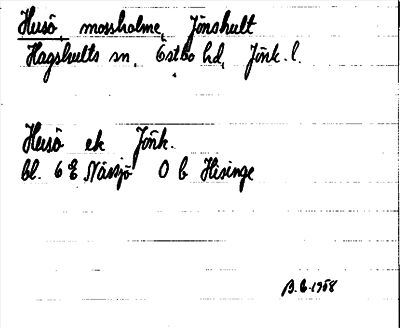 Husö, mossholme, Jönshult
Hagshults sn, Östbo hd, Jönk. l.
Husö ek Jönk.
bl. 6 E Nässjö O b Hisinge
B.E. 1958